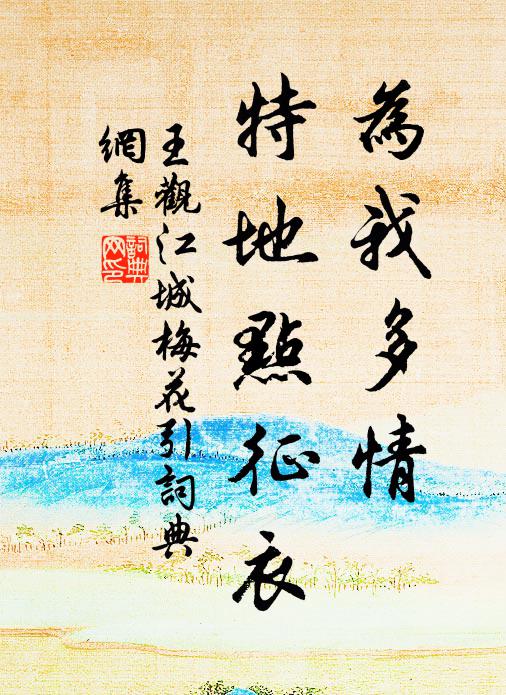 為我多情
特地點征衣
王觀江城梅花引詞典
網集
詞典
网印